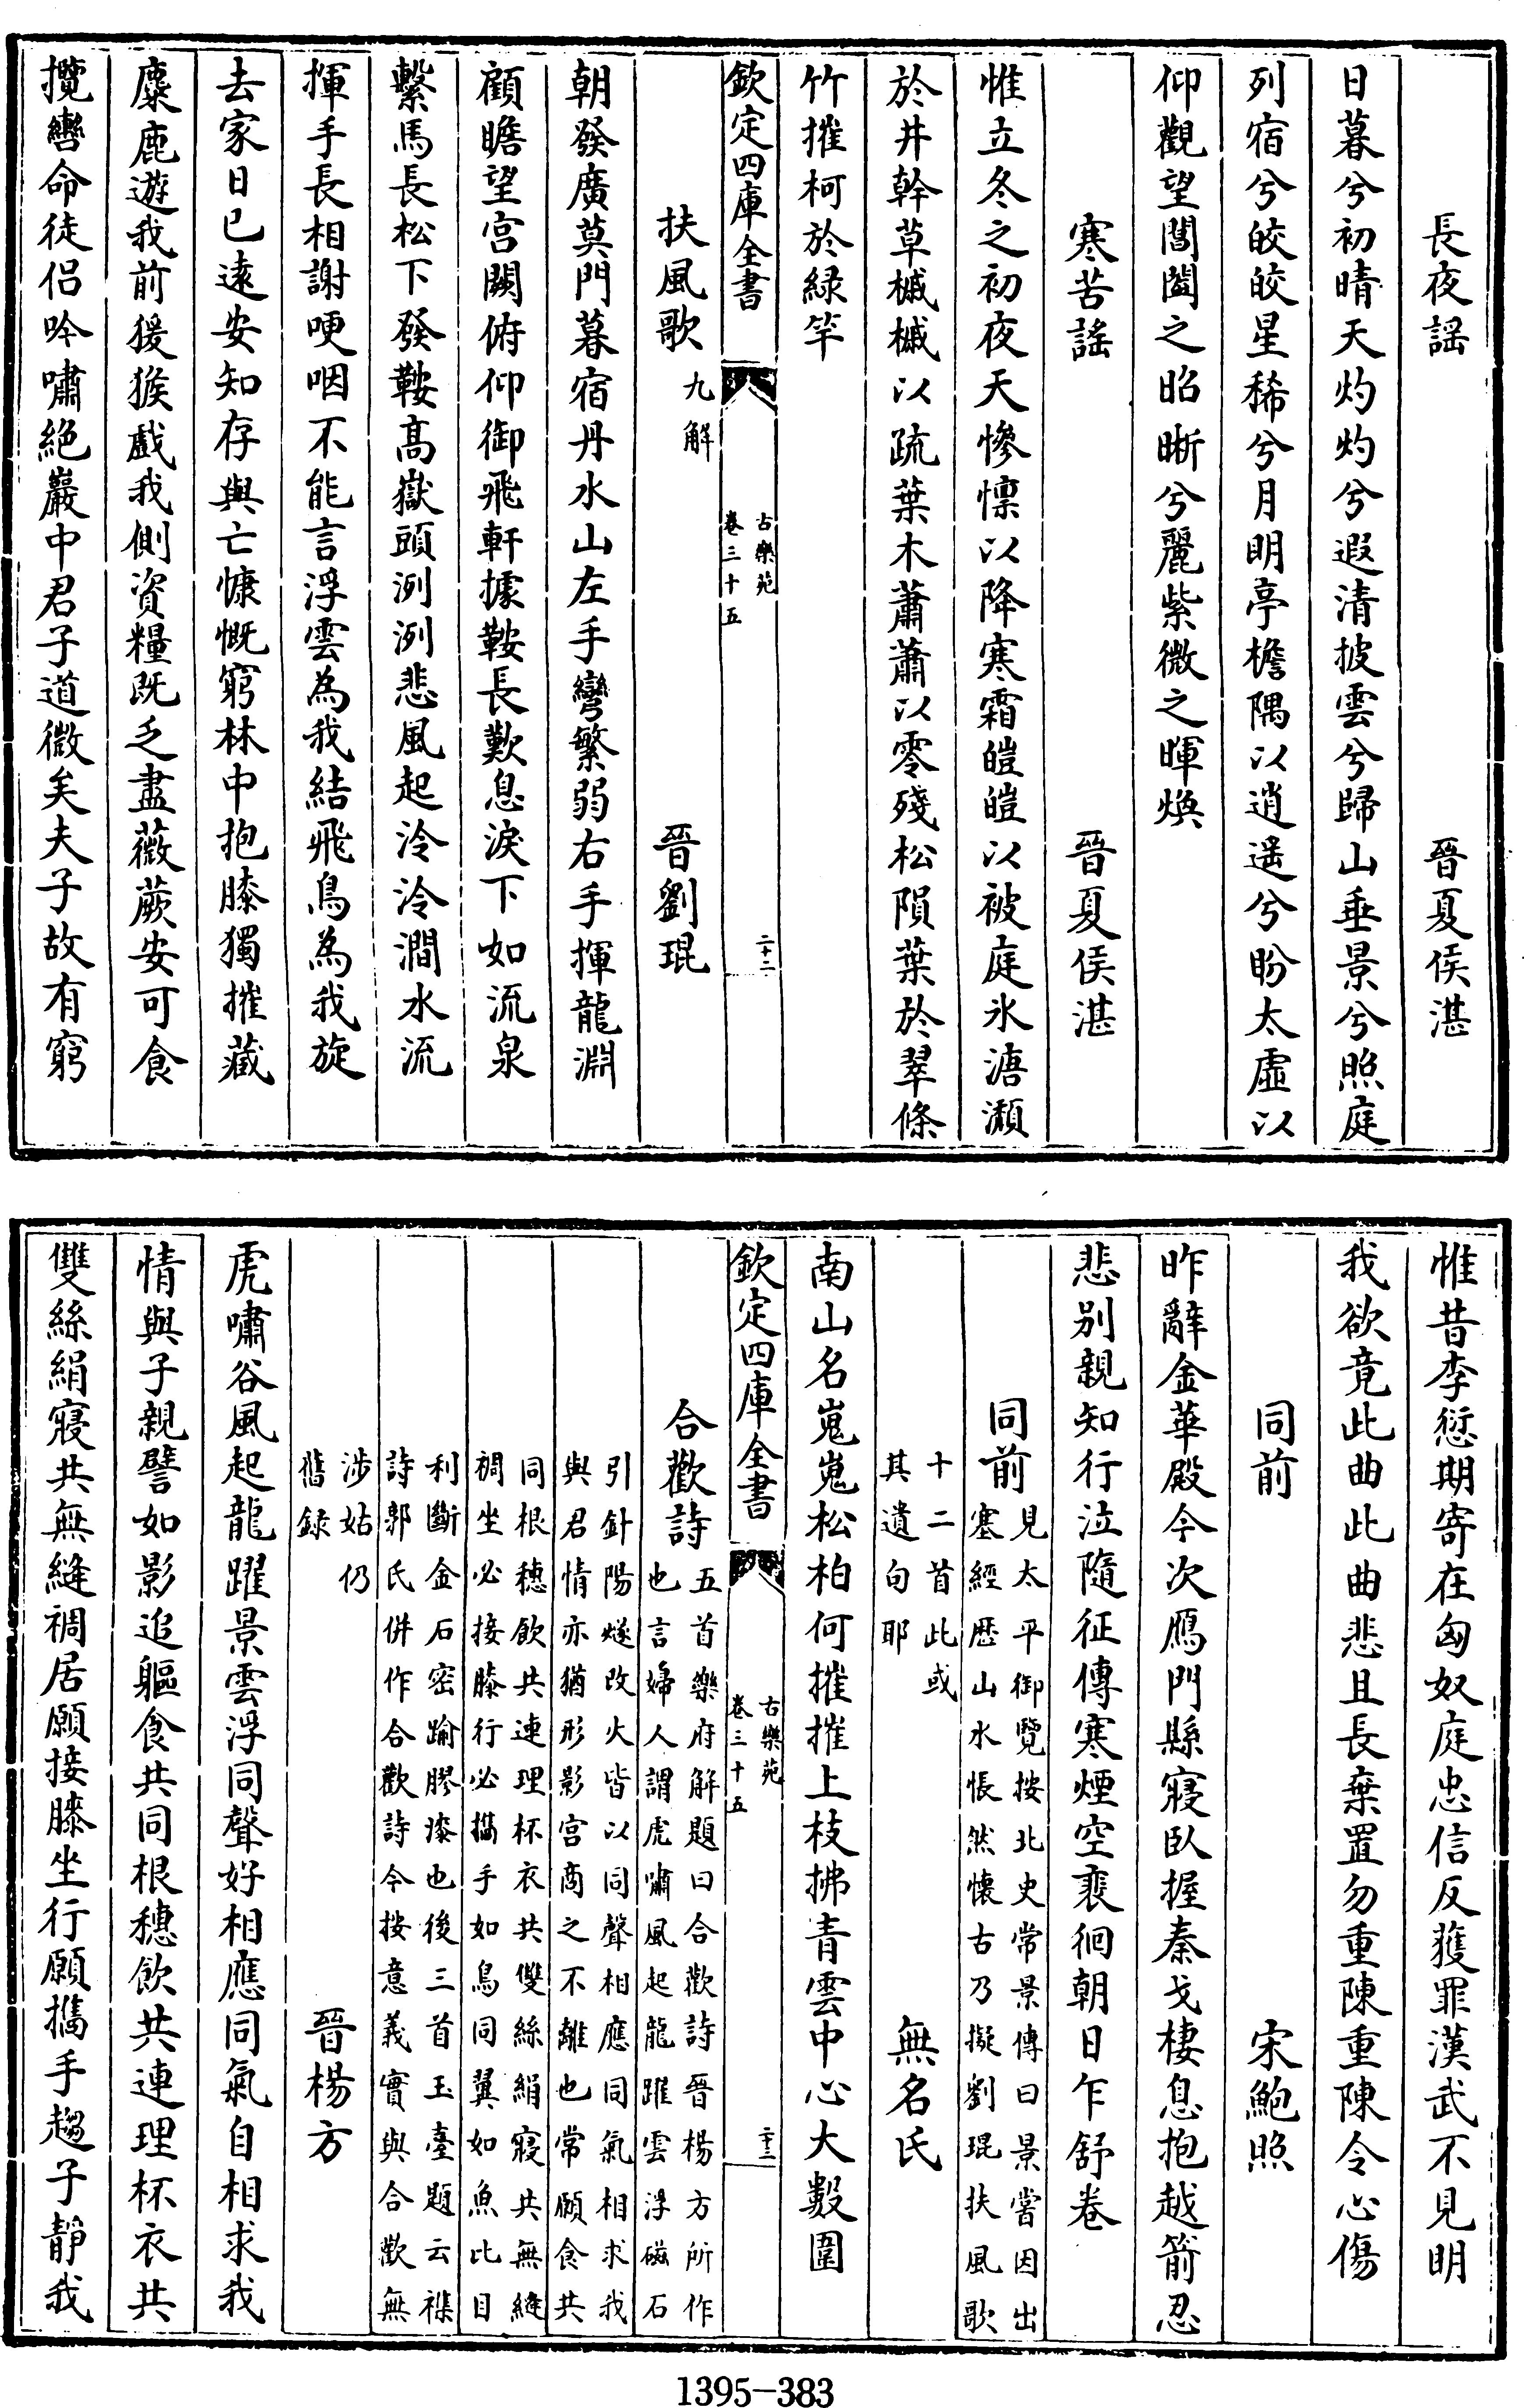 長夜謡　晉夏侯湛
日暮兮初晴天灼灼兮遐清披雲兮歸山垂景兮照庭
列宿兮皎皎星稀兮月明亭檐隅以逍遥兮盼太虛以
仰觀望閶闔之昭晰兮麗紫微之暉煥
寒苦謡　晉夏侯湛
惟立冬之初夜天慘懍以降寒霜皚皚以被庭氷溏瀨
於井幹草槭槭以疏葉木蕭蕭以零殘松隕葉於翠條
竹摧柯於緑竿
欽定四庫全書　古樂苑　卷三十五　二十二
扶風歌九解　晉劉琨
朝發廣莫門暮宿丹水山左手彎繁弱右手揮龍淵
顧瞻望宫闕俯仰御飛軒據鞍長歎息淚下如流泉
繫馬長松下發鞍髙嶽頭洌洌悲風起泠泠澗水流
揮手長相謝哽咽不能言浮雲為我結飛鳥為我旋
去家日已遠安知存與亡慷慨窮林中抱膝獨摧藏
麋鹿遊我前猨猴戲我側資糧既乏盡薇蕨安可食
攬轡命徒侣吟嘯絶巖中君子道微矣夫子故有窮
惟昔李愆期寄在匈奴庭忠信反獲罪漢武不見明
我欲竟此曲此曲悲且長棄置勿重陳重陳令心傷
同前　宋鮑照
昨辭金華殿今次鴈門縣寢臥握秦戈棲息抱越箭忍
悲别親知行泣隨征傳寒煙空裵徊朝日乍舒卷
同前見太平御覽按北史常景傳曰景嘗因出
塞經歴山水悵然懷古乃擬劉琨扶風歌
十二首此或
其遺句耶　無名氏
南山名嵬嵬松柏何摧摧上枝拂青雲中心大數圍
欽定四庫全書　古樂苑　卷三十五　二十三
合歡詩五首樂府解題曰合歡詩晉楊方所作
也言婦人謂虎嘯風起龍躍雲浮磁石
引針陽燧改火皆以同聲相應同氣相求我
與君情亦猶形影宫商之不離也常願食共
同根穗飲共連理杯衣共雙絲絹寢共無縫
裯坐必接膝行必攜手如鳥同翼如魚比目
利斷金石密踰膠漆也後三首玉臺題云襍
詩郭氏併作合歡詩今按意義實與合歡無
涉姑仍
舊録　晉楊方
虎嘯谷風起龍躍景雲浮同聲好相應同氣自相求我
情與子親譬如影追軀食共同根穗飲共連理杯衣共
雙絲絹寢共無縫裯居願接膝坐行願攜手趨子靜我
1395-383